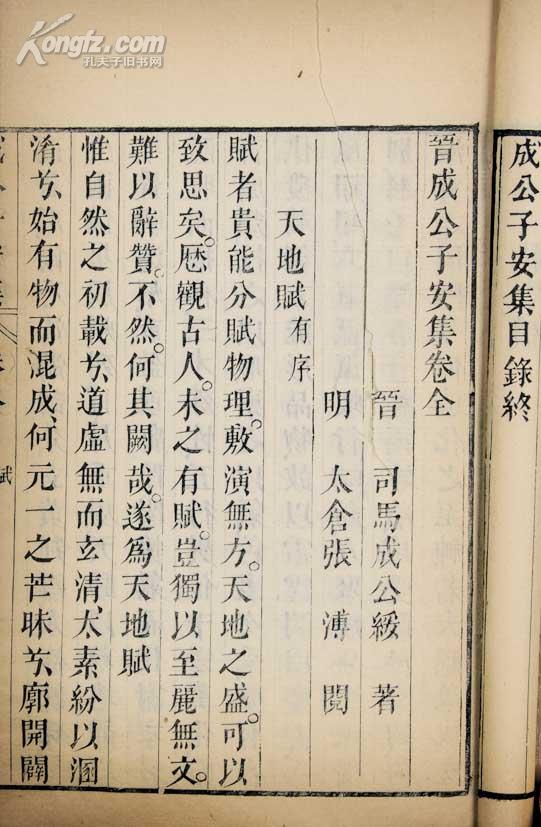 Kongfz.com
孔夫子旧书网
成公子安集目錄終
晉成公子安集卷全
晉 司馬成公綏 著
明 太倉張溥閱
天地賦有序
賦者貴能分賦物理。敷演無方。天地之盛。可以
致思矣。歷觀古人。未之有賦。豈獨以至麗無文。
難以辭贊。不然。何其闕哉。遂爲天地賦
惟自然之初載兮、道虛無而玄清、太素紛以溷
淆兮、始有物而混成、何元一之芒昧兮、廓開闢
賦